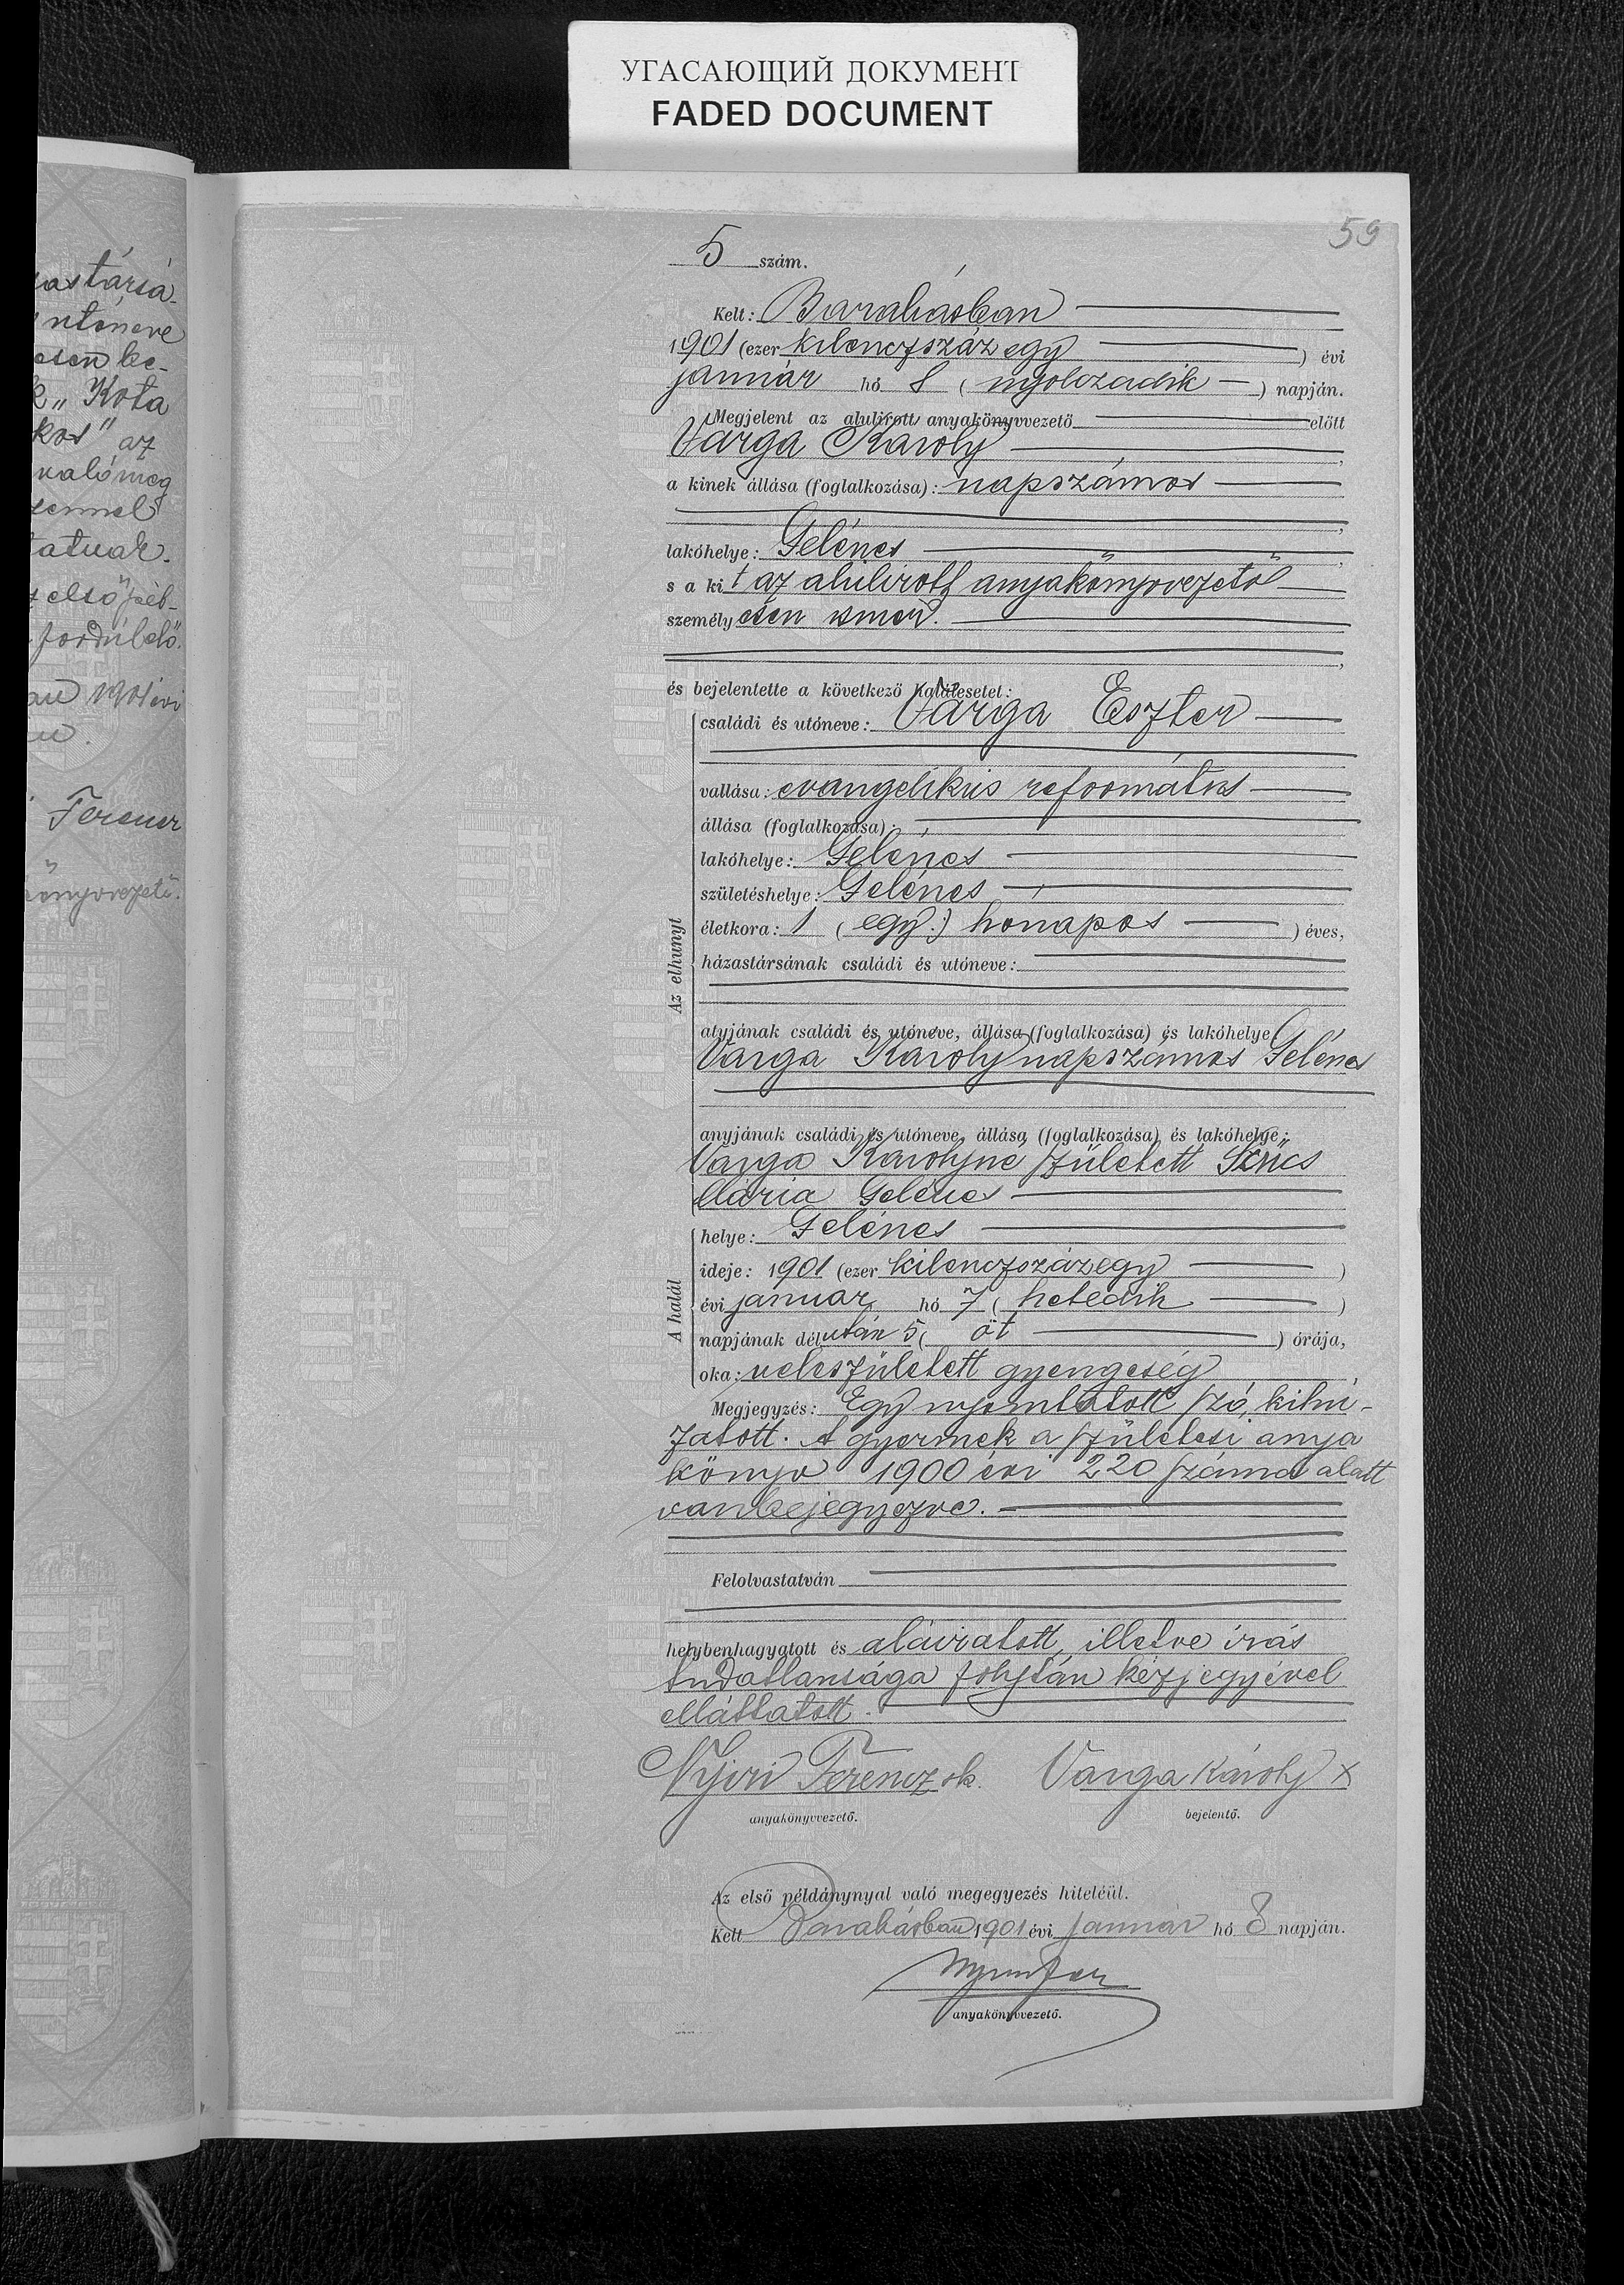 УГАСАЮЩИЙ ДОКУМЕНТ
FADED DOCUMENT
59
5 szám.
Kelt: Barabásban
1901 (ezer kilenczszáz egy) évi
január hó 8 (nyolczadik) napján.
Megjelent az alulírott anyakönyvvezető előtt
Varga Károly,
a kinek állása (foglalkozása): napszámos
lakóhelye: Gelénes
s a kit az alulirott anyakönyvvezető
személyesen ismer.
és bejelentette a következő halálesetet:
Az elhunyt
családi és utóneve: Varga Eszter
vallása: evangélikus református
állása (foglalkozása):
lakóhelye: Gelénes
születéshelye: Gelénes
életkora: 1 (egy.) honapos ) éves,
házastársának családi és utóneve:
atyjának családi és utóneve, állása (foglalkozása) és lakóhelye
Varga Károly napszámos Gelénes
anyjának családi és utóneve, állása (foglalkozása) és lakóhelye:
Varga Károlyné született Szűcs
Mária Gelénes
A halál
helye: Gelénes
ideje: 1901 (ezer kilenczszázegy)
évi január hó 7 (hetedik)
napjának délután 5 (öt) órája,
oka: veleszületett gyengeség
Megjegyzés: Egy nyomtatott szó, kihú-
zatott. A gyermek a születési anya
könyv 1900 évi 220 száma alatt
van bejegyezve.
Felolvastatván
helybenhagyatott és aláiratott, illetve írás
tudatlansága folytán kézjegyével
elláttatott.
Nyiri Ferencz sk. Varga Károly x
anyakönyvvezető. bejelentő.
Az első példánynyal való megegyezés hiteléül.
Kelt Barabásban 1901 évi január hó 8 napján.
anyakönyvvezető.
astársá-
utóneve
esen be-
"Kota
kos" az
való meg
tatuak.
első pél-
fordúló.
1901 évi
Ferencz
önyvvezető.